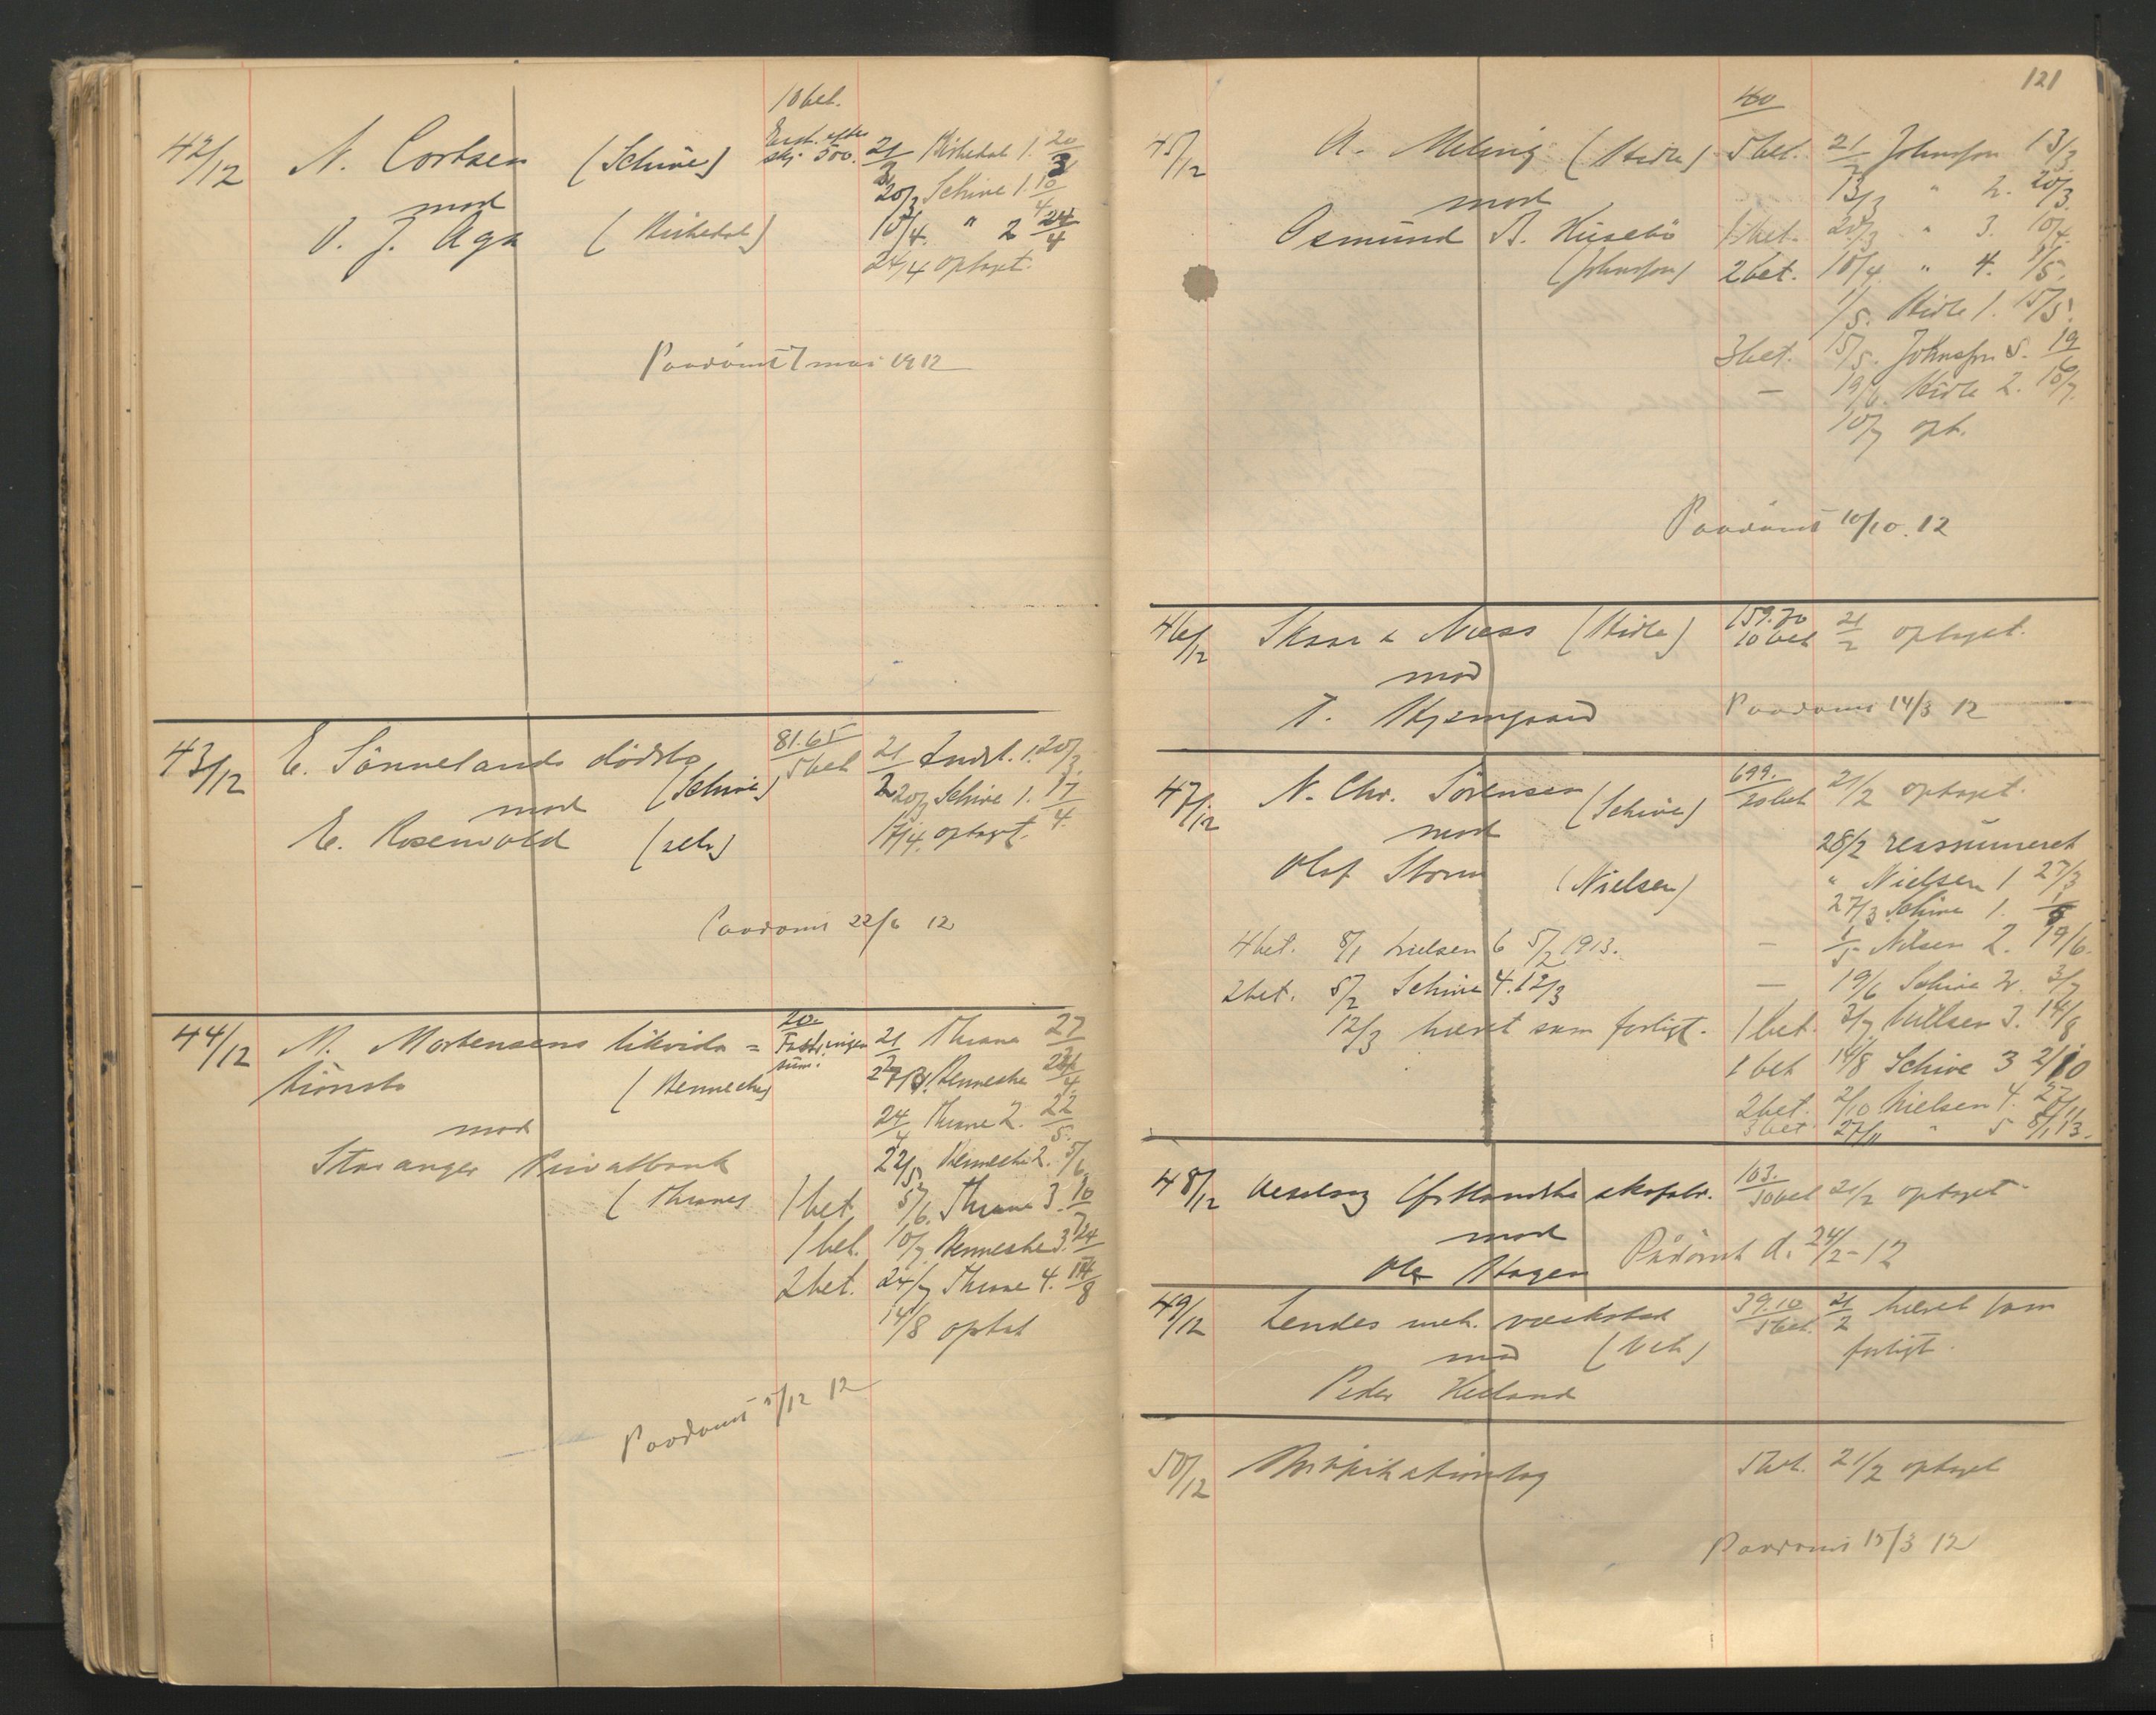 10 bet.
42/12 N. Cortsen (Schive) Erst. efter skj. 500. 21/2 Kirkedal 1. 20/3
mod 20/3 Schive 1. 10/4
O. J. Aga (Kirkedal) 10/4. " 2 24/4
24/4 optaget.
Paadømt 7 mai 1912
43/12 E. Sønnelands dødsbo 81.65 5 bet 21/2 Indst. 1. 20/3.
mod (Schive) 20/3 Schive 1. 17/4.
E. Rosenvold (selv) 17/4. optaget.
Paadømt 22/6 12
44/12 M. Mortensens likvida= 20. 21/2 Thrane 27/3
tionsbo (Benneche) 27/3. Benneche 24/4.
mod 24/4 Thrane 2. 22/5.
Stavanger Privatbank 22/5. Benneche 2. 5/6.
(Thrane) 1 bet. 5/6. Thrane 3. 10/7
1 bet. 10/7 Benneche 3. 24/7
2 bet. 24/7 Thrane 4. 14/8
14/8 optat
Paadømt 5/12 12
121
40
45/12 A. Meling (Hidle) 5 bet. 21/2 Johnsson 13/3.
mod 13/3 " 2. 20/3.
Osmund B. Husebø 1 bet. 20/3 " 3. 10/4.
(Johnsson) 2 bet. 10/4. " 4. 1/5.
1/5. Hidle 1. 15/5.
3 bet. 15/5. Johnsson 5. 19/6
— 19/6. Hidle 2. 10/7.
10/7 opt.
Paadømt 10/10. 12
46/12 Skaar & Næss (Hidle) 159.70 10 bet 21/2 optaget.
mod
T. Paadømt 14/3 12
47/12 N. Chr. Sørensen (Schive) 699. 20 bet 21/2 optaget.
mod 28/2 reassumeret
Olaf Storm (Nielsen) " Nielsen 1 27/3
27/3 Schive 1. 1/5
4 bet. 8/1 Nielsen 6 5/2 1913. — 1/5 Nilsen 2. 19/6.
2 bet. 5/2 Schive 4. 12/3 — 19/6 Schive 2. 3/7
12/3 hævet som forligt. 1 bet. 3/7. Nielsen 3. 14/8
1 bet 14/8 Schive 3 2/10
2 bet. 2/10 Nielsen 4. 27/11
3 bet 27/11 " 5 8/1 13.
48/12 skofabr. 103. 10 bet 21/2 optaget.
mod
Ole Hagen Pådømt d. 24/2-12
49/12 Lendes mek. værksted 39.10 5 bet. 21/2 hævet som
mod forligt.
Peder
50/12 5 bet. 21/2 optaget
Paadømt 15/3 12